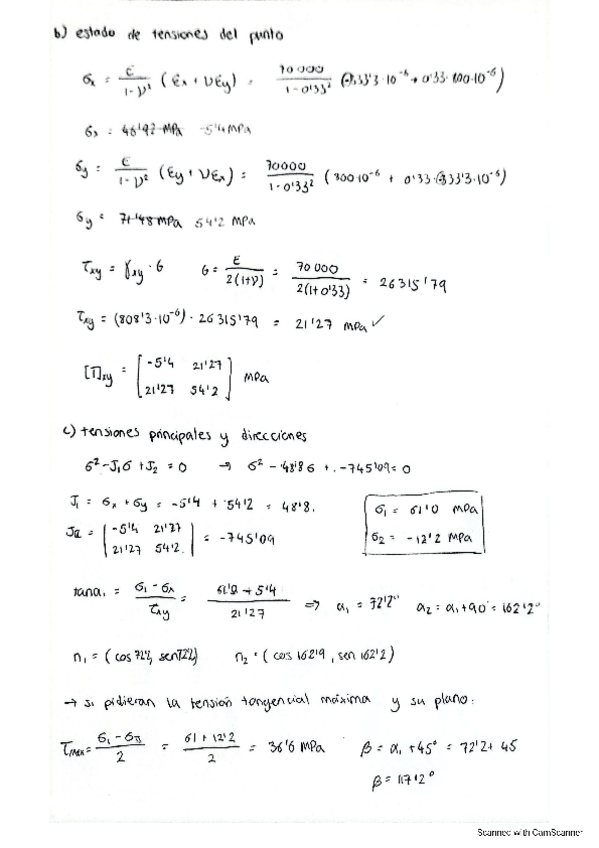 b) estado de tensiones del punto
σx = E/(1-ν²) (Ex + νEy) = 70 000/(1-0'33²) (-333'3·10⁻⁶ + 0'33·800·10⁻⁶)
σx = 48'92 MPa -5'4 MPa
σy = E/(1-ν²) (Ey + νEx) = 70000/(1-0'33²) (800·10⁻⁶ + 0'33·(-333'3·10⁻⁶)
σy = 71'48 MPa 54'2 MPa
τxy = γxy · G G = E/(2(1+ν)) = 70 000/(2(1+0'33)) = 26315'79
τxy = (808'3·10⁻⁶) · 26315'79 = 21'27 MPa ✓
[T]xy = [-5'4 21'27
21'27 54'2] MPa
c) tensiones principales y direcciones
σ² - J₁σ + J₂ = 0 → σ² - 48'8σ + -745'09 = 0
J₁ = σx + σy = -5'4 + 54'2 = 48'8.
J₂ = |-5'4 21'27
21'27 54'2| = -745'09
σ₁ = 61'0 MPa
σ₂ = -12'2 MPa
tanα₁ = (σ₁ - σx)/τxy = (61'0 + 5'4)/21'27 ⇒ α₁ = 72'2° α₂ = α₁+90 = 162'2°
n₁ = (cos 72'2, sen 72'2) n₂ = (cos 162'9, sen 162'2)
→ si pidieran la tensión tangencial máxima y su plano:
τmax = (σ₁ - σ₃)/2 = (61 + 12'2)/2 = 36'6 MPa β = α₁ + 45° = 72'2 + 45
β = 117'2°
Scanned with CamScanner